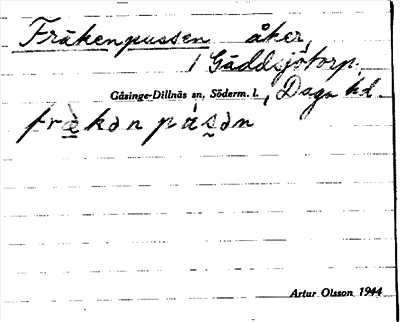 Fräkenpussen åker,
i Gäddsjötorp.
Gåsinge-Dillnäs sn, Söderm. l., Daga hd.
fræ̀kən pásən
Artur Olsson 1944